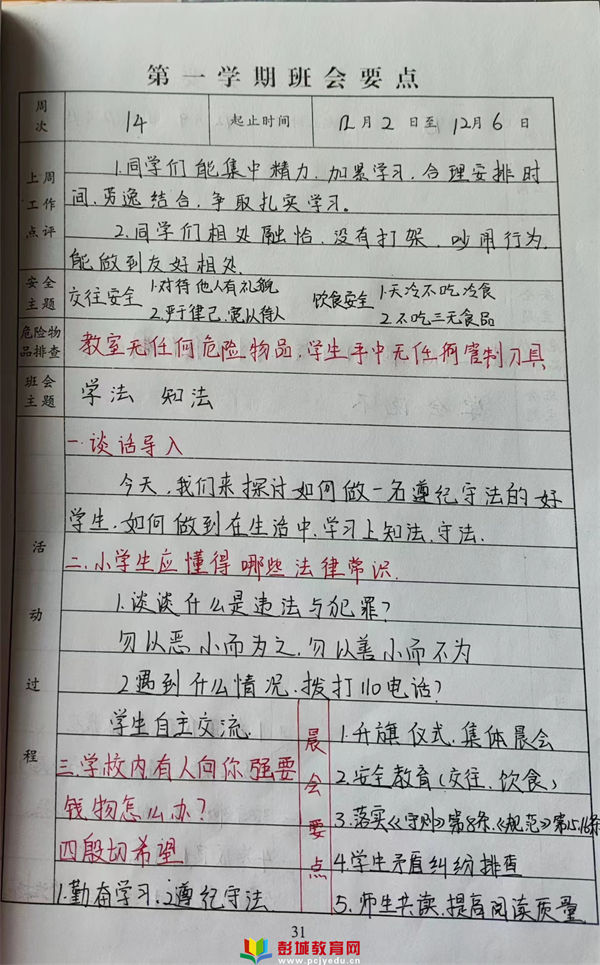 第一学期班会要点
周次 14 起止时间 12月2日至12月6日
上周工作点评
1.同学们能集中精力,加累学习,合理安排时
间,劳逸结合,争取扎实学习。
2.同学们相处融恰,没有打架,吵闹行为,
能做到友好相处.
安全主题
交往安全 1.对待他人有礼貌
2.严于律己,宽以待人
饮食安全 1.天冷不吃冷食
2.不吃三无食品
危险物品排查
教室无任何危险物品,学生手中无任何管制刀具
班会主题
学法 知法
活动过程
一.谈话导入
今天,我们来探讨如何做一名遵纪守法的好
学生,如何做到在生活中,学习上知法,守法.
二.小学生应懂得哪些法律常识.
1.谈谈什么是违法与犯罪?
勿以恶小而为之,勿以善小而不为
2.遇到什么情况,拨打110电话?
学生自主交流.
三.学校内有人向你强要
钱物怎么办?
四.殷切希望
1.勤奋学习,2.遵纪守法
晨会要点
1.升旗仪式,集体晨会
2.安全教育(交往、饮食)
3.落实《守则》第8条,《规范》第15.16条
4.学生矛盾纠纷排查
5.师生共读,提高阅读质量
31
彭城教育网
www.pcjyedu.cn